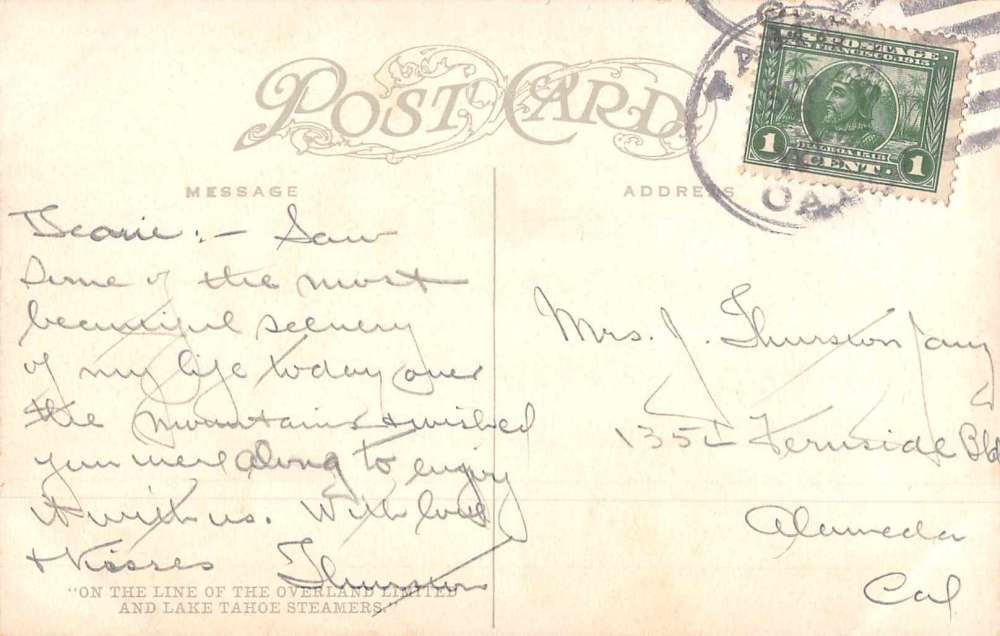 POST CARD
MESSAGE
ADDRESS
U.S. POSTAGE
SAN FRANCISCO, 1915
BALBOA 1513
1 CENT 1
CAL
Dearie :- Saw
Some of the most
beautiful scenery
of my life today over
the mountains & wished
you were along to enjoy
it with us. With love
& Kisses Thurston
"ON THE LINE OF THE OVERLAND LIMITED
AND LAKE TAHOE STEAMERS."
Mrs. J. Thurston
Fernside Bld
Alameda
Cal